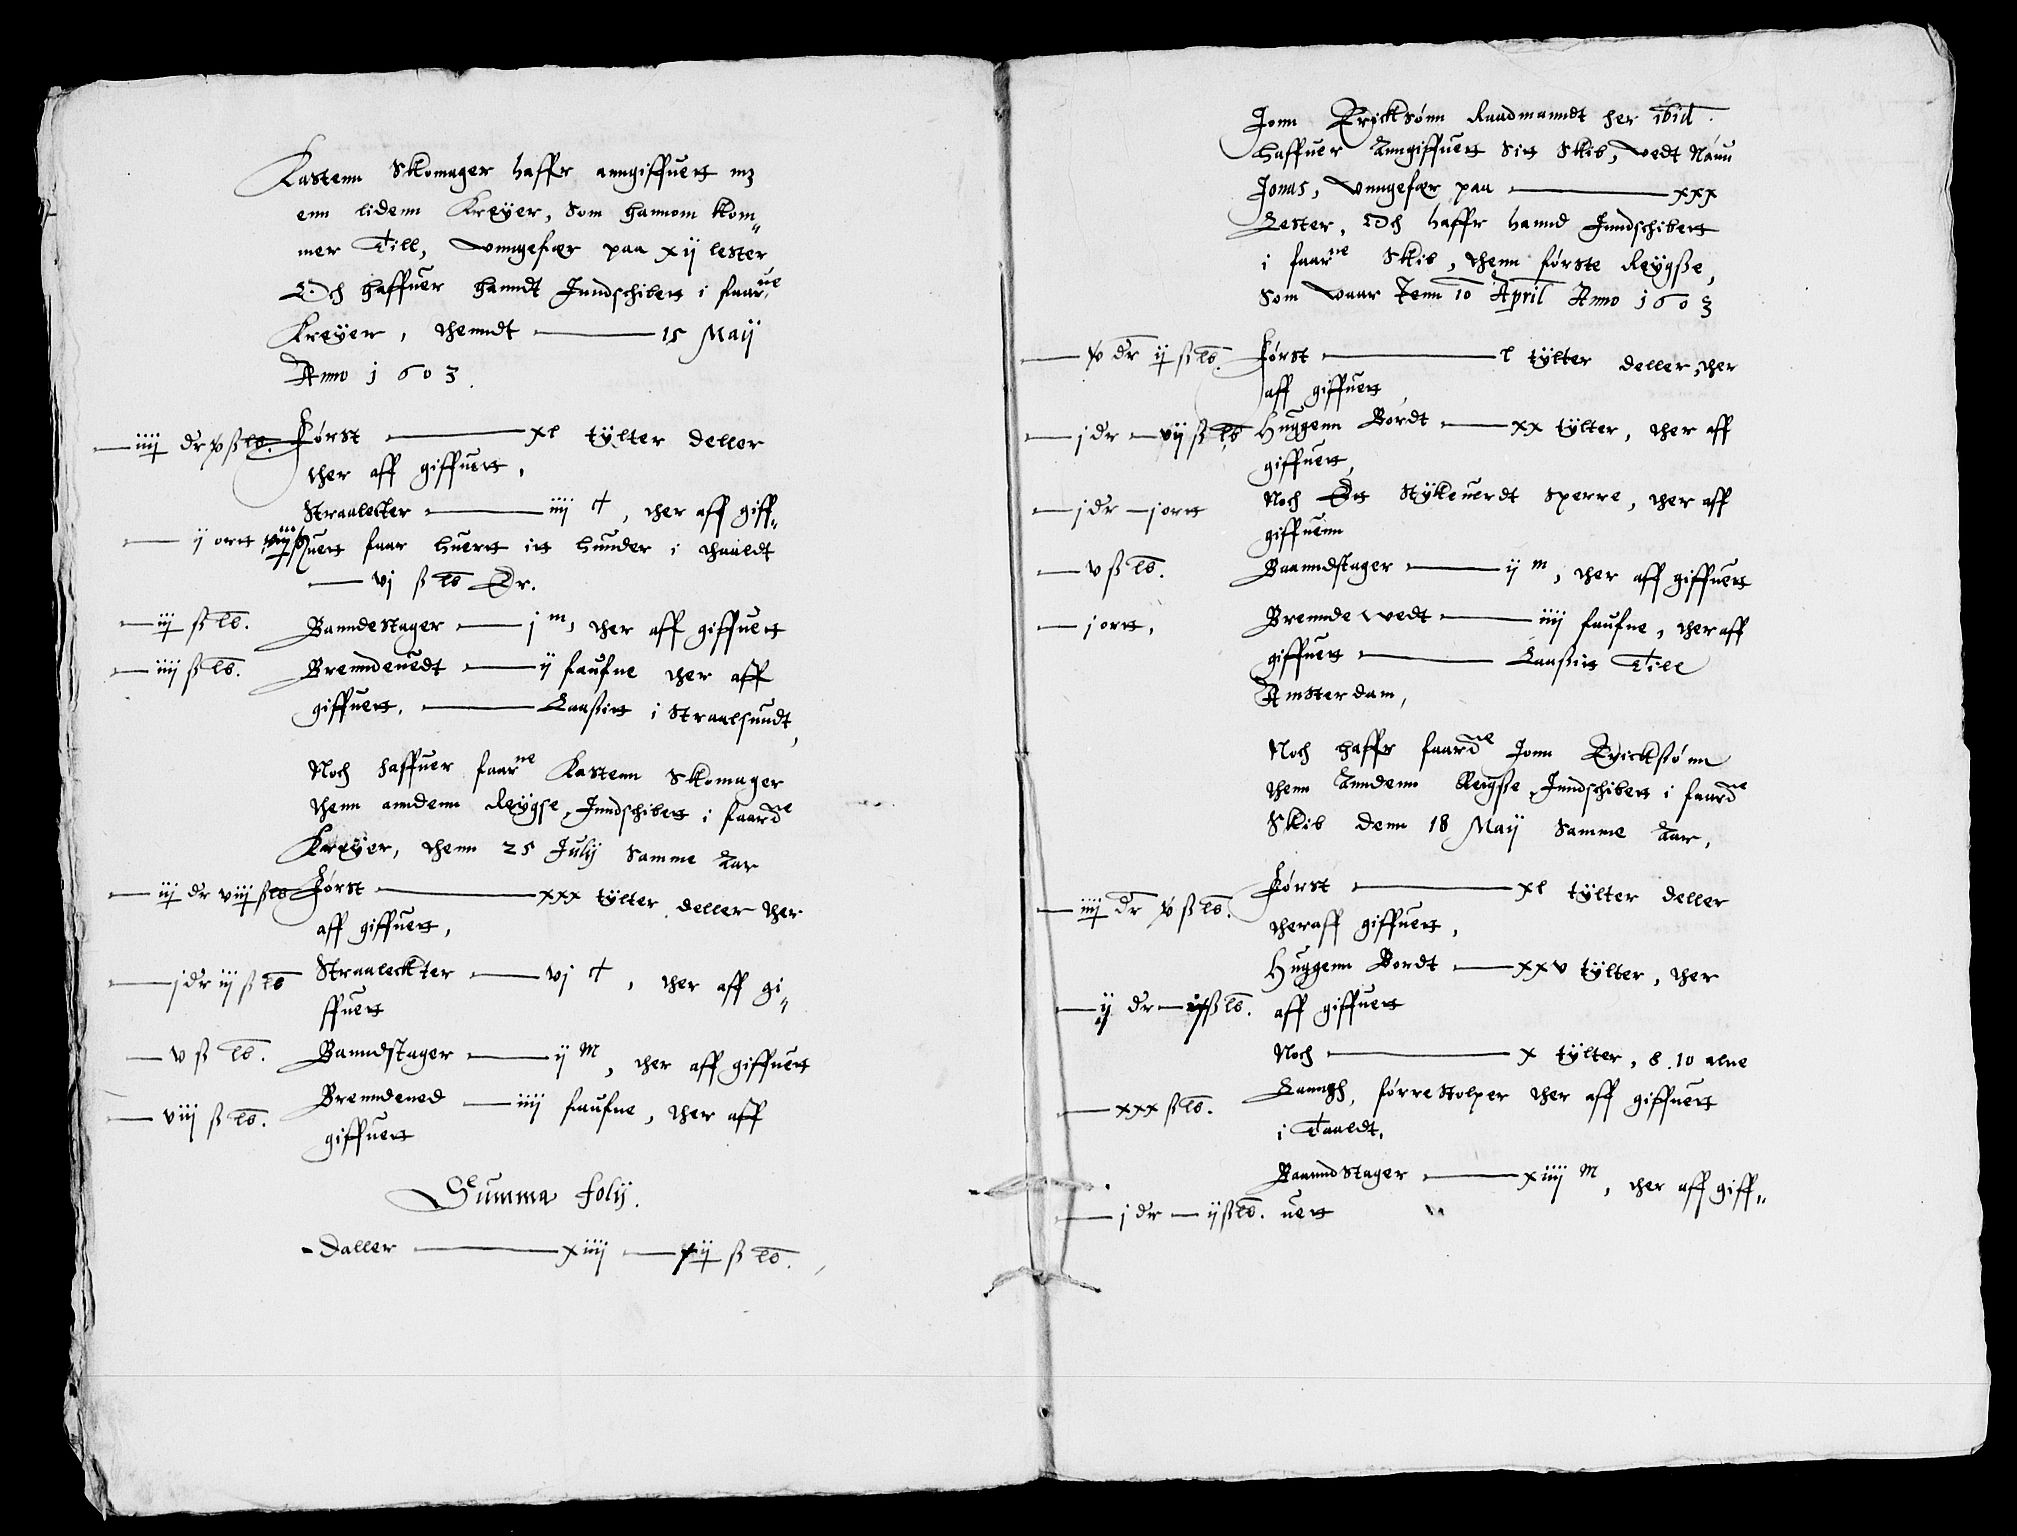 Kastenn Skomager haffr anngiffuett mz
enn lidenn Kreÿer, som hannom kom„
mer till, Unngefær paa xij lester
Och haffuer hanndt Inndschibett i faarne
Kreÿer, thenndt — 15 Maij
Anno 1603.
— iiij dr v ß lb. Først — xl tÿlter deller
ther aff giffuett,
Straalecter — iiij c, ther aff giff„
— ij ortt uett faar huertt itt hunder i thaaldt
— vj ß lb Er.
— iij ß lb. Banndestager — j m, ther aff giffuett
— iiij ß lb. Brenndeuedt — ij faufne ther aff
giffuett. — Laaßitt i Straalsundt,
Noch haffuer faarne Kastenn Skomager
thenn anndenn Reÿgse, Inndschibett i faardne
Kreÿer, thenn 25 Julij samme Aar
— iij dr viij ß lb Først — xxx tÿlter deller ther
aff giffuett,
— j dr iij ß lb Straaleckter — vj c, ther aff gi„
ffuett
— v ß lb. Banndstager — ij M, ther aff giffuett
— viij ß lb. Brenndeued — iiij faufne, ther aff
giffuett
Summa folij.
Daller — xiiij — ij ß lb.
Jonn Ericksønn Raadmanndt her ibid.
haffuer Anngiffuett sit Skib, vedt Naun
Jonas, Unngefær paa — xxx
Lester, Och haffr hannd Inndschibett
i faarne Skib, thenn første Reÿgße,
som vaar Tenn 10 April Anno 1603
— v dr ij ß lb. Først — l tÿlter deller, ther
aff giffuett
— j dr — vij ß lb Huggenn Bordt — xx tÿlter, ther aff
giffuett,
— j dr — j ortt Noch Et Stÿkeuerdt Sperre, ther aff
giffuenn
— v ß lb. Baanndstager — ij m, ther aff giffuett
— j ortt, Brennde wedt — iiij faufne, ther aff
giffuett — Laaßitt Till
Amsterdam,
Noch haffr faardne Jonn Erickßønn
thenn Anndenn Reigße, Inndschibett i faardne
Skib denn 18 Maij Samme Aar,
— iiij dr v ß lb. Først — xl tÿlter deller
theraff giffuett,
Huggenn Bordt — xxv tÿlter, ther
— ij dr — ß lb. aff giffuett
Noch — x tÿlter, 8. 10 alne
— xxx ß lb. Lanngh, førre stolper ther aff giffuett
i Taaldt,
Baanndstager — xiiij M, ther aff giff„
— j dr — ij ß lb. uett